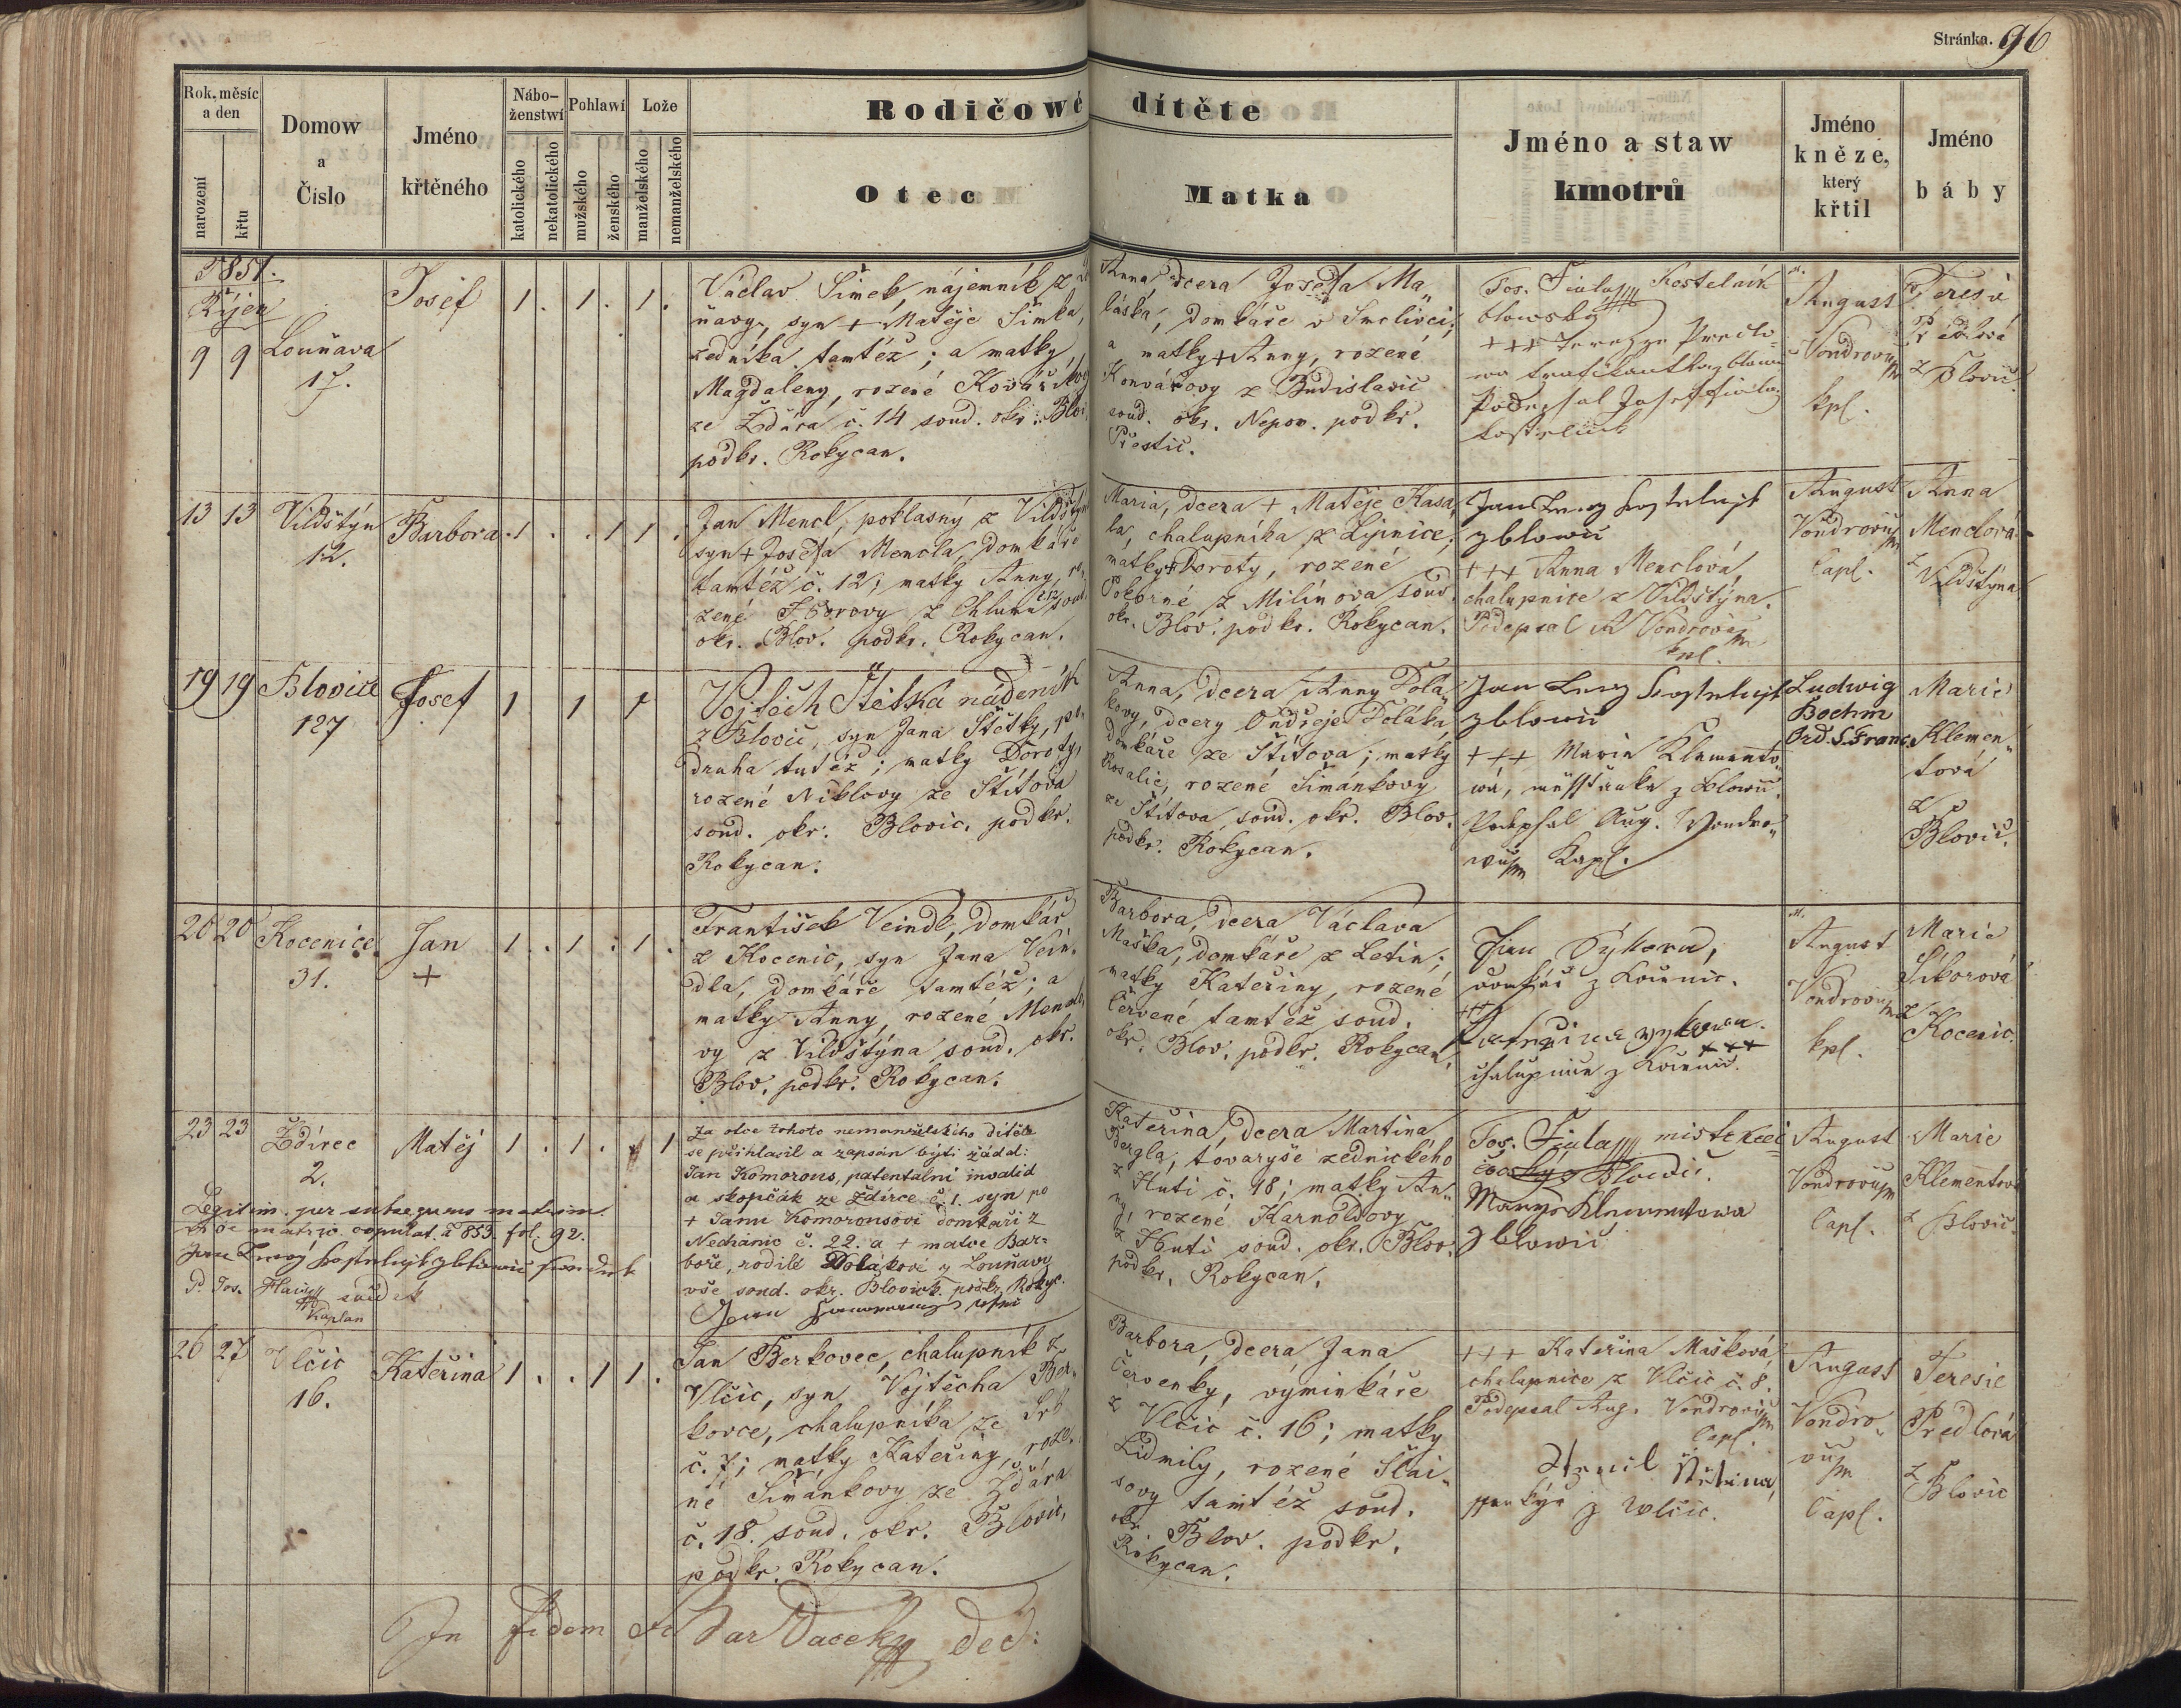 Stránka. 96
Rok, měsíc
a den
narození
křtu
Domow
a
Čislo
Jméno
křtěného
Nábo-
ženstwí
katolického
nekatolického
Pohlawí
mužského
ženského
Lože
manželského
nemanželského
Rodičowé dítěte
Otec
Matka
Jméno a staw
kmotrů
Jméno
kněze,
který
křtil
Jméno
báby
1851.
Říjen
9 9 Louňava
17.
Josef
1 . 1 . 1 .
Václav Šimek, nájemník z Lou
ňavy, syn + Matěje Šimka,
zedníka tamtéž; a matky
Magdaleny, rozené Kovaříkovy
ze Ždára č. 14 soud. okr. Blov.
podkr. Rokycan.
Anna, dcera Josefa Ma„
láska, domkáře v Smolivci;
a matky + Anny, rozené
Konvářovy z Budislavic
soud. okr. Nepom. podkr.
Přestic.
Jos. Fiala Kostelník
blowský
+++
Podepsal Josef Fiala
kostelník
August
Vondrovič
kpl.
Teresie
Prédlová
z Blovic.
13 13 Vildštýn
12.
Barbora
. 1 . . 1 1 .
Jan Mencl, poklasný z Vildštýn
syn + Josefa Mencla, domkáře
tamtéž č. 12; matky Anny, ro„
zené Fborovy z Chlumu č. 12 soud.
okr. Blov. podkr. Rokycan.
Maria, dcera + Matěje Kasa„
la, chalupníka z Lipnice;
matky + Doroty, rozené
Pokorné z Milínova soud.
okr. Blov. podkr. Rokycan.
Jan Levý kostelnik
z blowic
+++ Anna Menclová,
chalupnice z Vildštýna.
Podepsal A Vondrovič
kpl.
August
Vondrovič
Capl.
Anna
Menclová
z
Vildštýna
19 19 Blovice
127
Josef
1 1 1
Vojtěch Štětka nádeník
z Blovic, syn Jana Štětky, po„
druha tutéž; matky Doroty,
rozené Niklovy ze Štítova
soud. okr. Blovic. podkr.
Rokycan.
Anna, dcera Anny Polá„
kovy, dcery Ondřeje Poláka,
domkáře ze Štítova; matky
Rosalie, rozené Šimánkovy
ze Štítova, soud. okr. Blov.
podkr. Rokycan.
Jan Levy kostelnik
z blowic
+++ Marie Klemento„
wá, měsstanka z Blowic.
Podepsal Aug. Vondro„
wič Kapl.
Ludwig
Boehm
Ord. S. Franc.
Marie
Klemen„
tová
z
Blovic.
20 20 Kocenice
31.
Jan
+
1 . 1 . 1 .
František Veindl, domkář
z Kocenic, syn Jana Vein„
dla, domkáře tamtéž; a
matky Anny, rozené Menclo
vy z Vildštýna soud. okr.
Blov. podkr. Rokycan.
Barbora, dcera Václava
Maška, domkáře z Letin;
matky Kateřiny, rozené
Červené tamtéž soud.
okr. Blov. podkr. Rokycan.
Jan Sýkora,
domkář z Kocenic.
+++
Kateřina Sykora
+++
chalupnice z Kocenic.
August
Vondrovič
kpl.
Marie
Sikorová
z
Kocenic.
23 23 Ždírec
2.
Matěj
1 . 1 . 1
Legitim. per subsequens matrim.
vide matric. copulat. a 853. fol. 92.
Jan Lewý kostelnik z blowic swědek
P. Jos. Hain swědek
Kaplan
Za otce tohoto nemanželského dítěte
se přihlasil a zapsán býti žádal:
Jan Komorous, patentalní invalid
a skopčák ze Ždírce č. 1. syn po
+ Janu Komorousovi domkáři z
Nechánic č. 22. a + matce Bar=
boře, rodilé Polákové z Louňavy
vše soud. okr. Blovick. podkr. Rokyc.
Jan Komorous
Kateřina, dcera Martina
Pergla, tovaryše zednického
z Huti č. 18; matky An„
ny, rozené Karnoldovy
z Huti soud. okr. Blov.
podkr. Rokycan.
Jos. Fiala mistr krei
čowský z Blowic.
Marye Klementowa
z blowic
August
Vondrovič
Capl.
Marie
Klementová
z Blovic.
26 27 Vlčic
16.
Kateřina
1 . . 1 1 .
Jan Berkovec, chalupník z
Vlčic, syn Vojtěcha Ber„
kovce, chalupníka ze Srb
č. 7; matky Kateřiny, roze„
né Šimánkovy ze Ždára
č. 18. soud. okr. Blovic,
podkr. Rokycan.
Barbora, dcera Jana
Červenky, výminkáře
z Vlčic č. 16; matky
Lidmily, rozené Šlai„
sovy tamtéž soud.
okr. Blov. podkr.
Rokycan.
+++ Kateřina Mašková,
chalupnice z Vlčic č. 8.
Podepsal Aug. Vondrovič
Capl.
z Wlčic.
August
Vondro„
vič
Capl.
Teresie
Prédlová
z
Blovic
In fidem